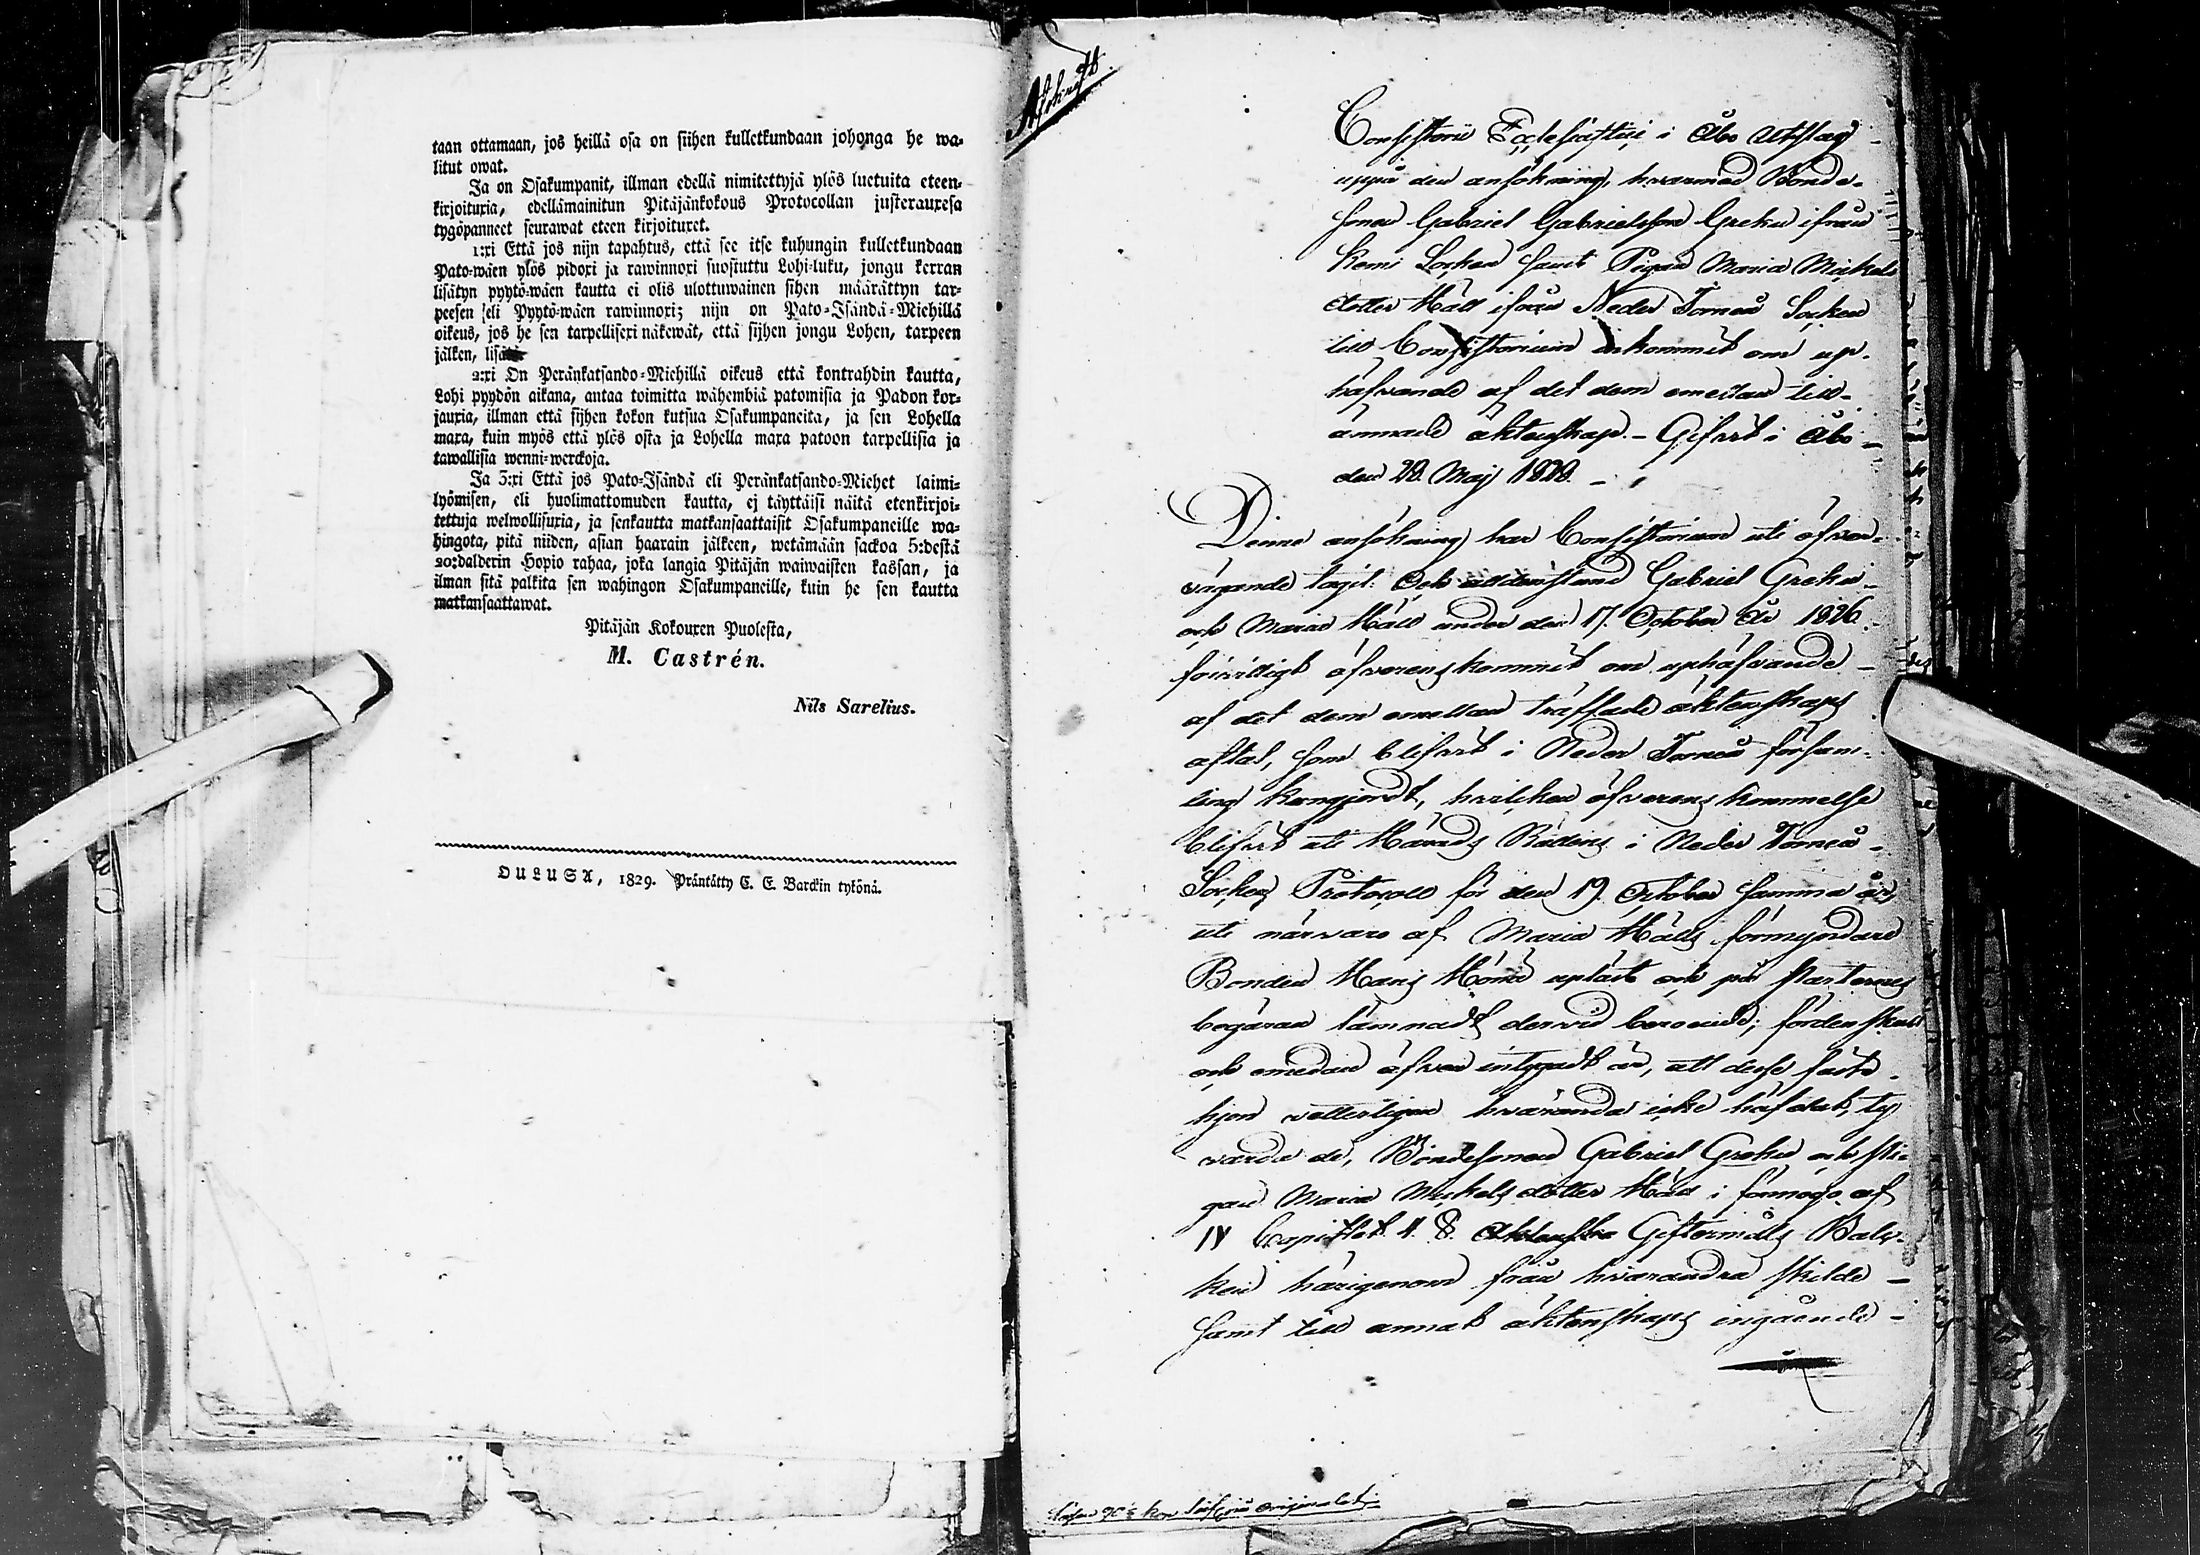 taan ottamaan, jos heillä osa on siihen kulletkundaan johonga he wa-
litut owat.
Ja on Osakumpanit, illman edellä nimitettyjä ylös luetuita eteen-
kirjoituxia, edellämainitun Pitäjänkokous Protocollan justerauxesa
tygöpanneet seurawat eteen kirjoituxet.
1:xi Että jos nijn tapahtus, että see itse kuhungin kulletkundaan
Pato-wäen ylös pidoxi ja rawinnoxi suostuttu Lohi-luku, jongu kerran
lisätyn pyytö-wäen kautta ei olis ulottuwainen sihen määrättyn tar-
peesen eli Pyytö-wäen rawinnoxi; nijn on Pato-Isändä-Miehillä
oikeus, jos he sen tarpellisexi näkewät, että sijhen jongu Lohen, tarpeen
jälken, lisätä
2:xi On Peränkatsando-Miehillä oikeus että kontrahdin kautta,
Lohi pyydön aikana, antaa toimitta wähembiä patomisia ja Padon kor-
jauxia, illman että sijhen kokon kutsua Osakumpaneita, ja sen Lohella
maxa, kuin myös että ylös osta ja Lohella maxa patoon tarpellisia ja
tawallisia wenni-werckoja.
Ja 3:xi Että jos Pato-Isändä eli Peränkatsando-Miehet laimi-
lyömisen, eli huolimattomuden kautta, ej täyttäisi näitä etenkirjoi-
tettuja welwollisuxia, ja senkautta matkansaattaisit Osakumpaneille wa-
hingota, pitä niiden, asian haarain jälkeen, wetämään sackoa 5:destä
20:dalderin Hopio rahaa, joka langia Pitäjän waiwaisten kassan, ja
ilman sitä palkita sen wahingon Osakumpaneille, kuin he sen kautta
matkansaattawat.
Pitäjän Kokouxen Puolesta,
M. Castrén.
Nils Sarelius.
OULUSA, 1829. Präntätty C. E. Barckin tykönä.
Afskrift.
Consistorii Ecclesiastici i Åbo Utslag
uppå den ansökning, hvarmed Bonde-
sonen Gabriel Gabrielsson Greku ifrån
Kemi Socken samt Pigan Maria Mickels
dotter Häll ifrån Neder Torneå Socken
till Consistorium inkommit om up-
häfvande af det dem emellan till-
ämnade äktenskap. - Gifvit i Åbo
den 28. Maj 1828. -
Denne ansökning har Consistorium uti öfver-
vägande tagit: Och alldenstund Gabriel Greku
och Maria Häll under den 17. October år 1826.
frivilligt öfverenskommit om uphäfvande
af det dem emellan träffade äktenskaps
aftal, som blifvit i Neder Torneå försam-
ling kungjordt, hvilken öfverenskommelse
blifvit uti Härads Rättens i Neder Torneå
Sockens Protocoll för den 19. October samma år,
uti närvaro af Maria Hälls förmyndare
Bonden Hans upläst och på Parternes
begäran lämnadt dervid beroende; fördenskull
och emedan äfven intygadt är, att desse fäste-
hjon vetterligen hvaranda icke häfdat, ty
varda de, Bondesonen Gabriel Greku och Pi-
gan Maria Mickels dotter Häll i förmågo af
IV Capitlet 4. §. Giftermåls Bal-
ken härigenom från hvarandra skilde
samt till annat äktenskaps ingående